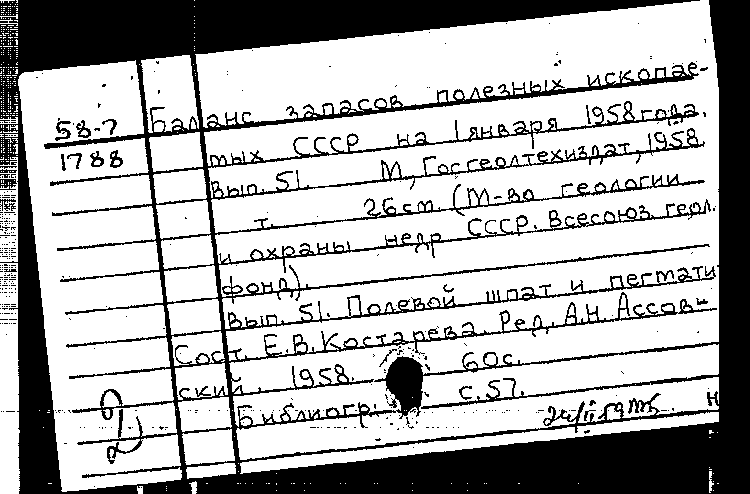 58-7 Баланс запасов полезных ископае-
1788 мых СССР на 1 января 1958 года.
Вып. 51. М., Госгеолтехиздат, 1958.
т. 26 см. (М-во геологии
и охраны недр СССР. Всесоюз. геол.
фонд).
Вып. 51. Полевой шпат и пегматит
Сост. Е.В. Костарева. Ред. А.Н. Ассов-
ский. 1958. 60 с.
Библиогр. с. 57.
Н